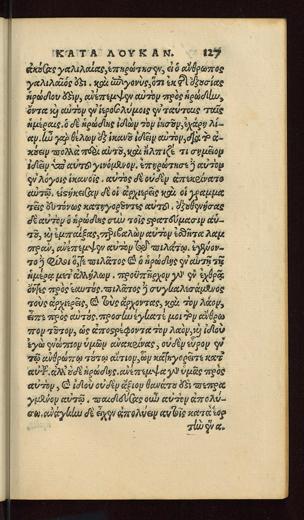 ΚΑΤΑ ΛΟΥΚΑΝ. 127
ἀκούσας γαλιλαίας, ἐπηρώτησεν, εἰ ὁ ἄνθρωπος
γαλιλαῖός ὅδι. καὶ ἐπιγνοὺς, ὅτι ἐκ τῆς ἐξουσίας
ἡρώδου ὅδιν, ἀνέπεμψεν αὐτὸν πρὸς ἡρώδην,
ὄντα καὶ αὐτὸν ἐν ἱεροσολύμοις ἐν ταύταις ταῖς
ἡμέραις. ὁ δὲ ἡρώδης ἰδὼν τὸν ἰησοῦν, ἐχάρη λί-
αν. ἦν γὰρ θέλων ἐξ ἱκανοῦ ἰδεῖν αὐτὸν, διὰ τὸ ἀ-
κούειν πολλὰ περὶ αὐτοῦ, καὶ ἤλπιζέ τι σημεῖον
ἰδεῖν ὑπ' αὐτοῦ γινόμενον. ἐπηρώτησε δὲ αὐτὸν
ἐν λόγοις ἱκανοῖς. αὐτὸς δὲ οὐδὲν ἀπεκρίνατο
αὐτῷ. εἱστήκεισαν δὲ οἱ ἀρχιερεῖς καὶ οἱ γραμμα
τεῖς εὐτόνως κατηγοροῦντες αὐτοῦ. ἐξουθενήσας
δὲ αὐτὸν ὁ ἡρώδης σὺν τοῖς στρατεύμασιν αὐ-
τοῦ, καὶ ἐμπαίξας, περιβαλὼν αὐτὸν ἐσθῆτα λαμ
πρὰν, ἀνέπεμψεν αὐτὸν τῷ πιλάτῳ. ἐγένον-
το δὲ φίλοι ὅ, τε πιλάτος καὶ ὁ ἡρώδης ἐν αὐτῇ τῇ
ἡμέρᾳ μετ' ἀλλήλων. προϋπῆρχον γὰρ ἐν ἔχθρᾳ
ὄντες πρὸς ἑαυτούς. πιλάτος δὲ συγκαλεσάμενος
τοὺς ἀρχιερεῖς, καὶ τοὺς ἄρχοντας, καὶ τὸν λαὸν,
εἶπε πρὸς αὐτούς. προσηνέγκατέ μοι τὸν ἄνθρω
πον τοῦτον, ὡς ἀποστρέφοντα τὸν λαὸν, καὶ ἰδοὺ
ἐγὼ ἐνώπιον ὑμῶν ἀνακρίνας, οὐδὲν εὗρον ἐν
τῷ ἀνθρώπῳ τούτῳ αἴτιον, ὧν κατηγορεῖτε κατ'
αὐτοῦ. ἀλλ' οὐδὲ ἡρώδης. ἀνέπεμψα γὰρ ὑμᾶς πρὸς
αὐτὸν, καὶ ἰδοὺ οὐδὲν ἄξιον θανάτου ὅδι πεπρα
γμένον αὐτῷ. παιδεύσας οὖν αὐτὸν ἀπολύ-
σω. ἀνάγκην δὲ εἶχεν ἀπολύειν αὐτοῖς κατὰ ἑορ
τὴν ἕνα.